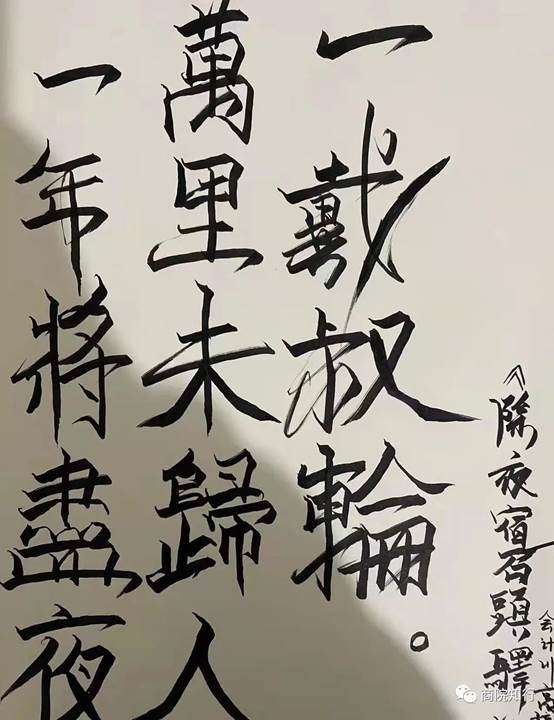 一年將盡夜
萬里未歸人
—戴叔輪。
《除夜宿石頭驛
会计
商院知行